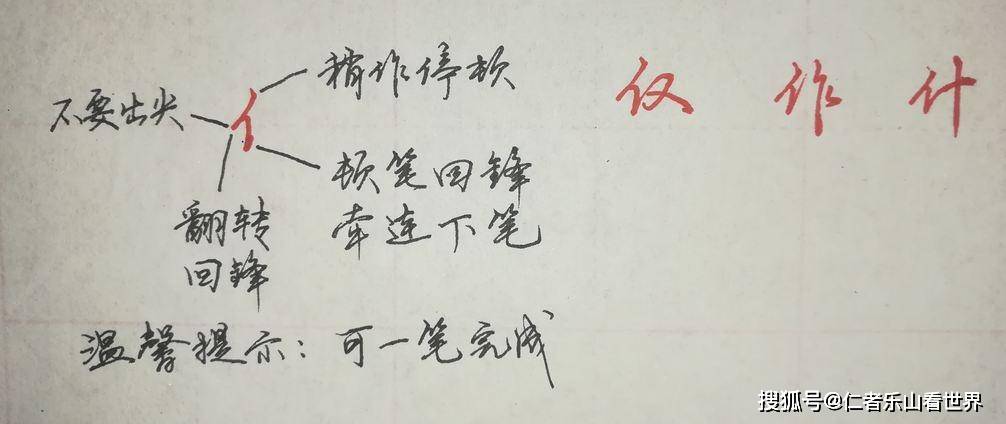 稍作停顿
不要出尖
亻
仅 作 什
顿笔回锋
牵连下笔
翻转
回锋
温馨提示：可一笔完成
搜狐号@仁者乐山看世界